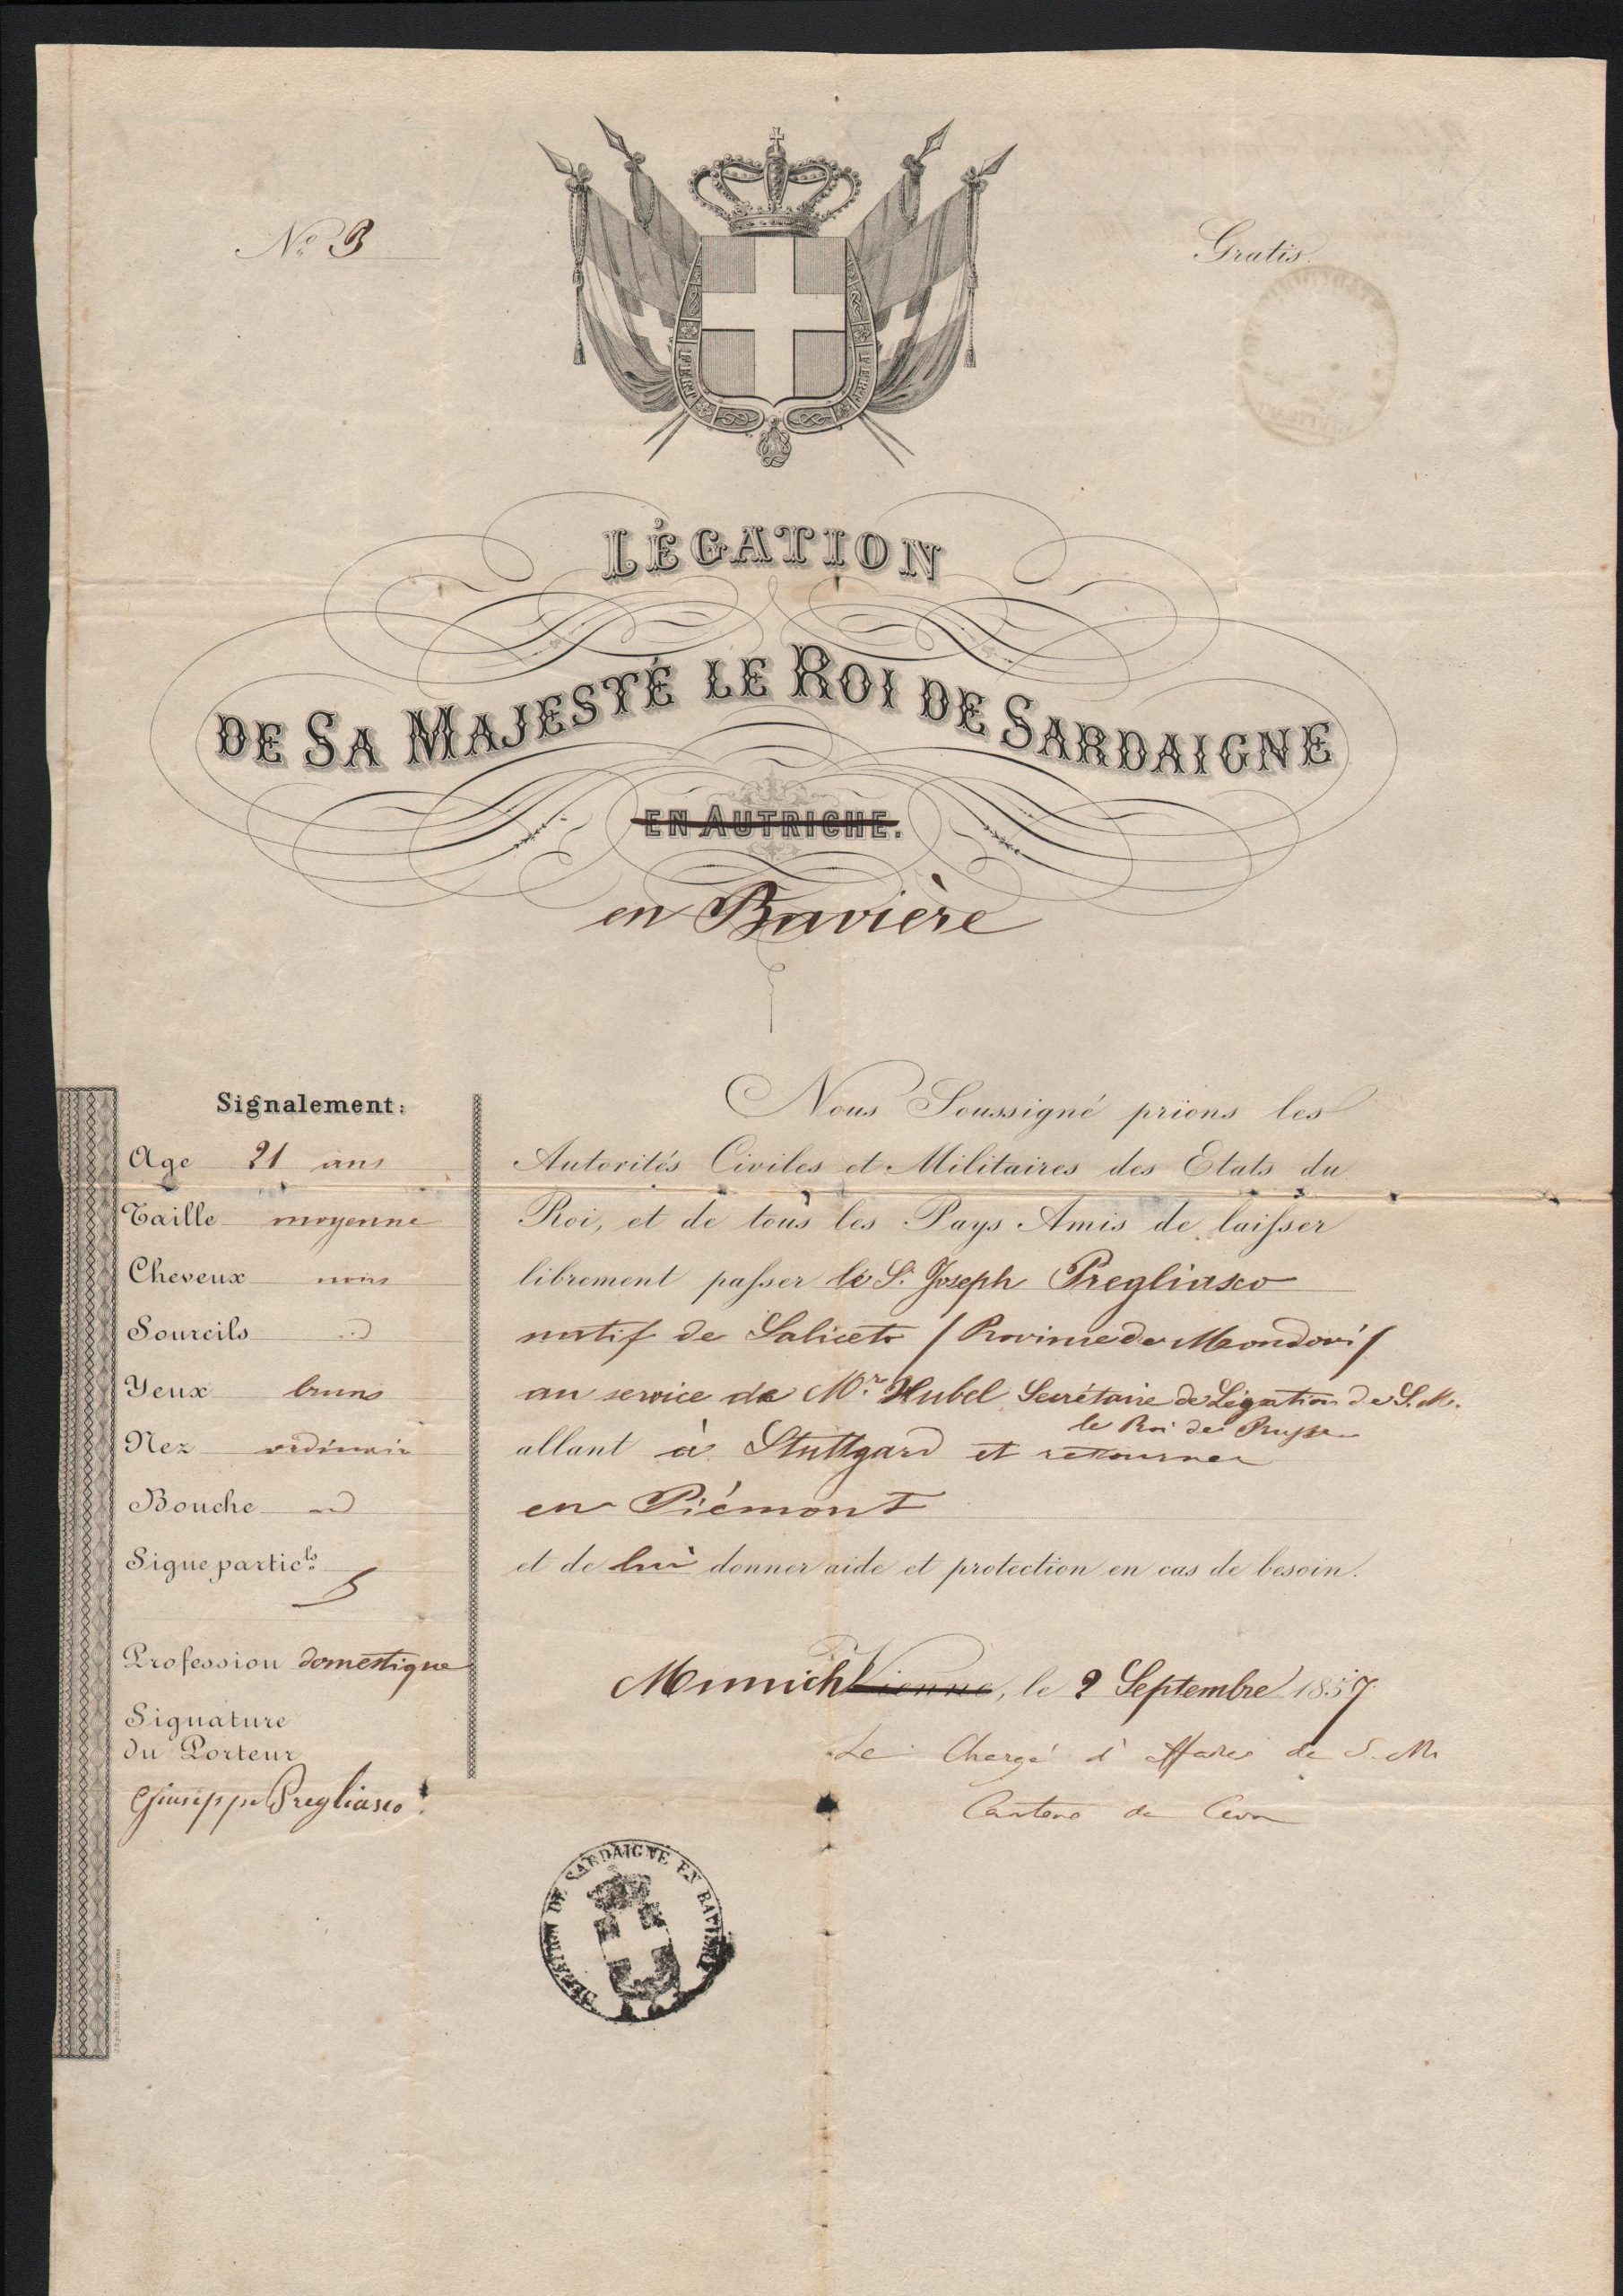 No 3
Gratis.
FERT
FERT
LÉGATION
DE SA MAJESTÉ LE ROI DE SARDAIGNE
EN AUTRICHE.
en Bavière
Signalement:
Age 21 ans
Taille moyenne
Cheveux noirs
Sourcils id
Yeux bruns
Nez ordinair
Bouche id
Signe particls
Profession domestique
Signature
du Porteur
Giuseppe Pregliasco
Nous Soussigné prions les
Autorités Civiles et Militaires des Etats du
Roi, et de tous les Pays Amis de laisser
librement passer le S. Joseph Pregliasco
natif de Saliceto / Province de Mondovi /
au service de Mr Hubel Secrétaire de Légation de S. M.
le Roi de Prusse
allant à Stuttgard et retourner
en Piémont
et de lui donner aide et protection en cas de besoin.
Munich Vienne, le 2 Septembre 1857
Le Chargé d'Affaires de S. M.
LEGATION DE SARDAIGNE EN BAVIERE